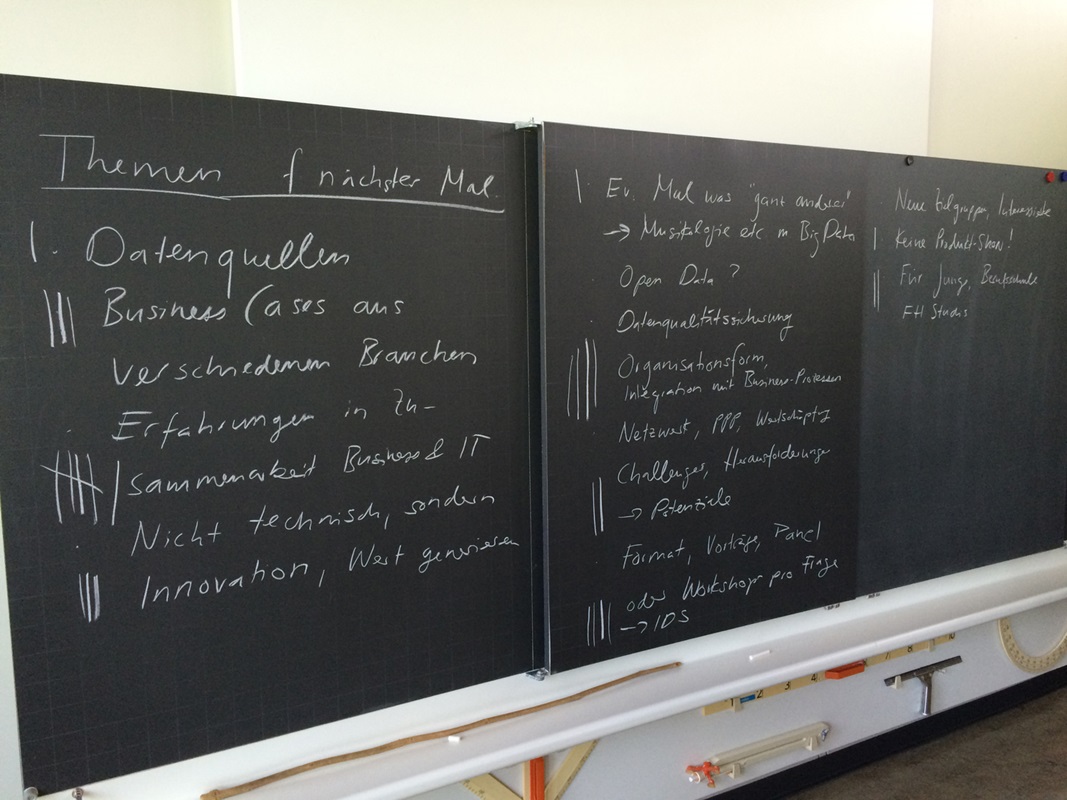 Themen f nächster Mal.
Datenquellen
Business Cases aus
verschiedenen Branchen
Erfahrungen in Zu-
sammenarbeit Business & IT
Nicht technisch, sondern
Innovation, Wert generieren
Ev. Mal was "ganz anderes"
→ Musikologie etc. m Big Data
Open Data ?
Datenqualitätssicherung
Organisationsform,
Integration mit Business-Prozessen
Netzwerk, PPP,
Challenges, Herausforderungen
→ Potenziale
Format, Vorträge, Panel
oder Workshop pro Frage
→ IDS
Neue Zielgruppen,
Keine Produkt-Show!
Für Junge, Berufsschule
FH Studis
1 2 3 4 7 8 9 10